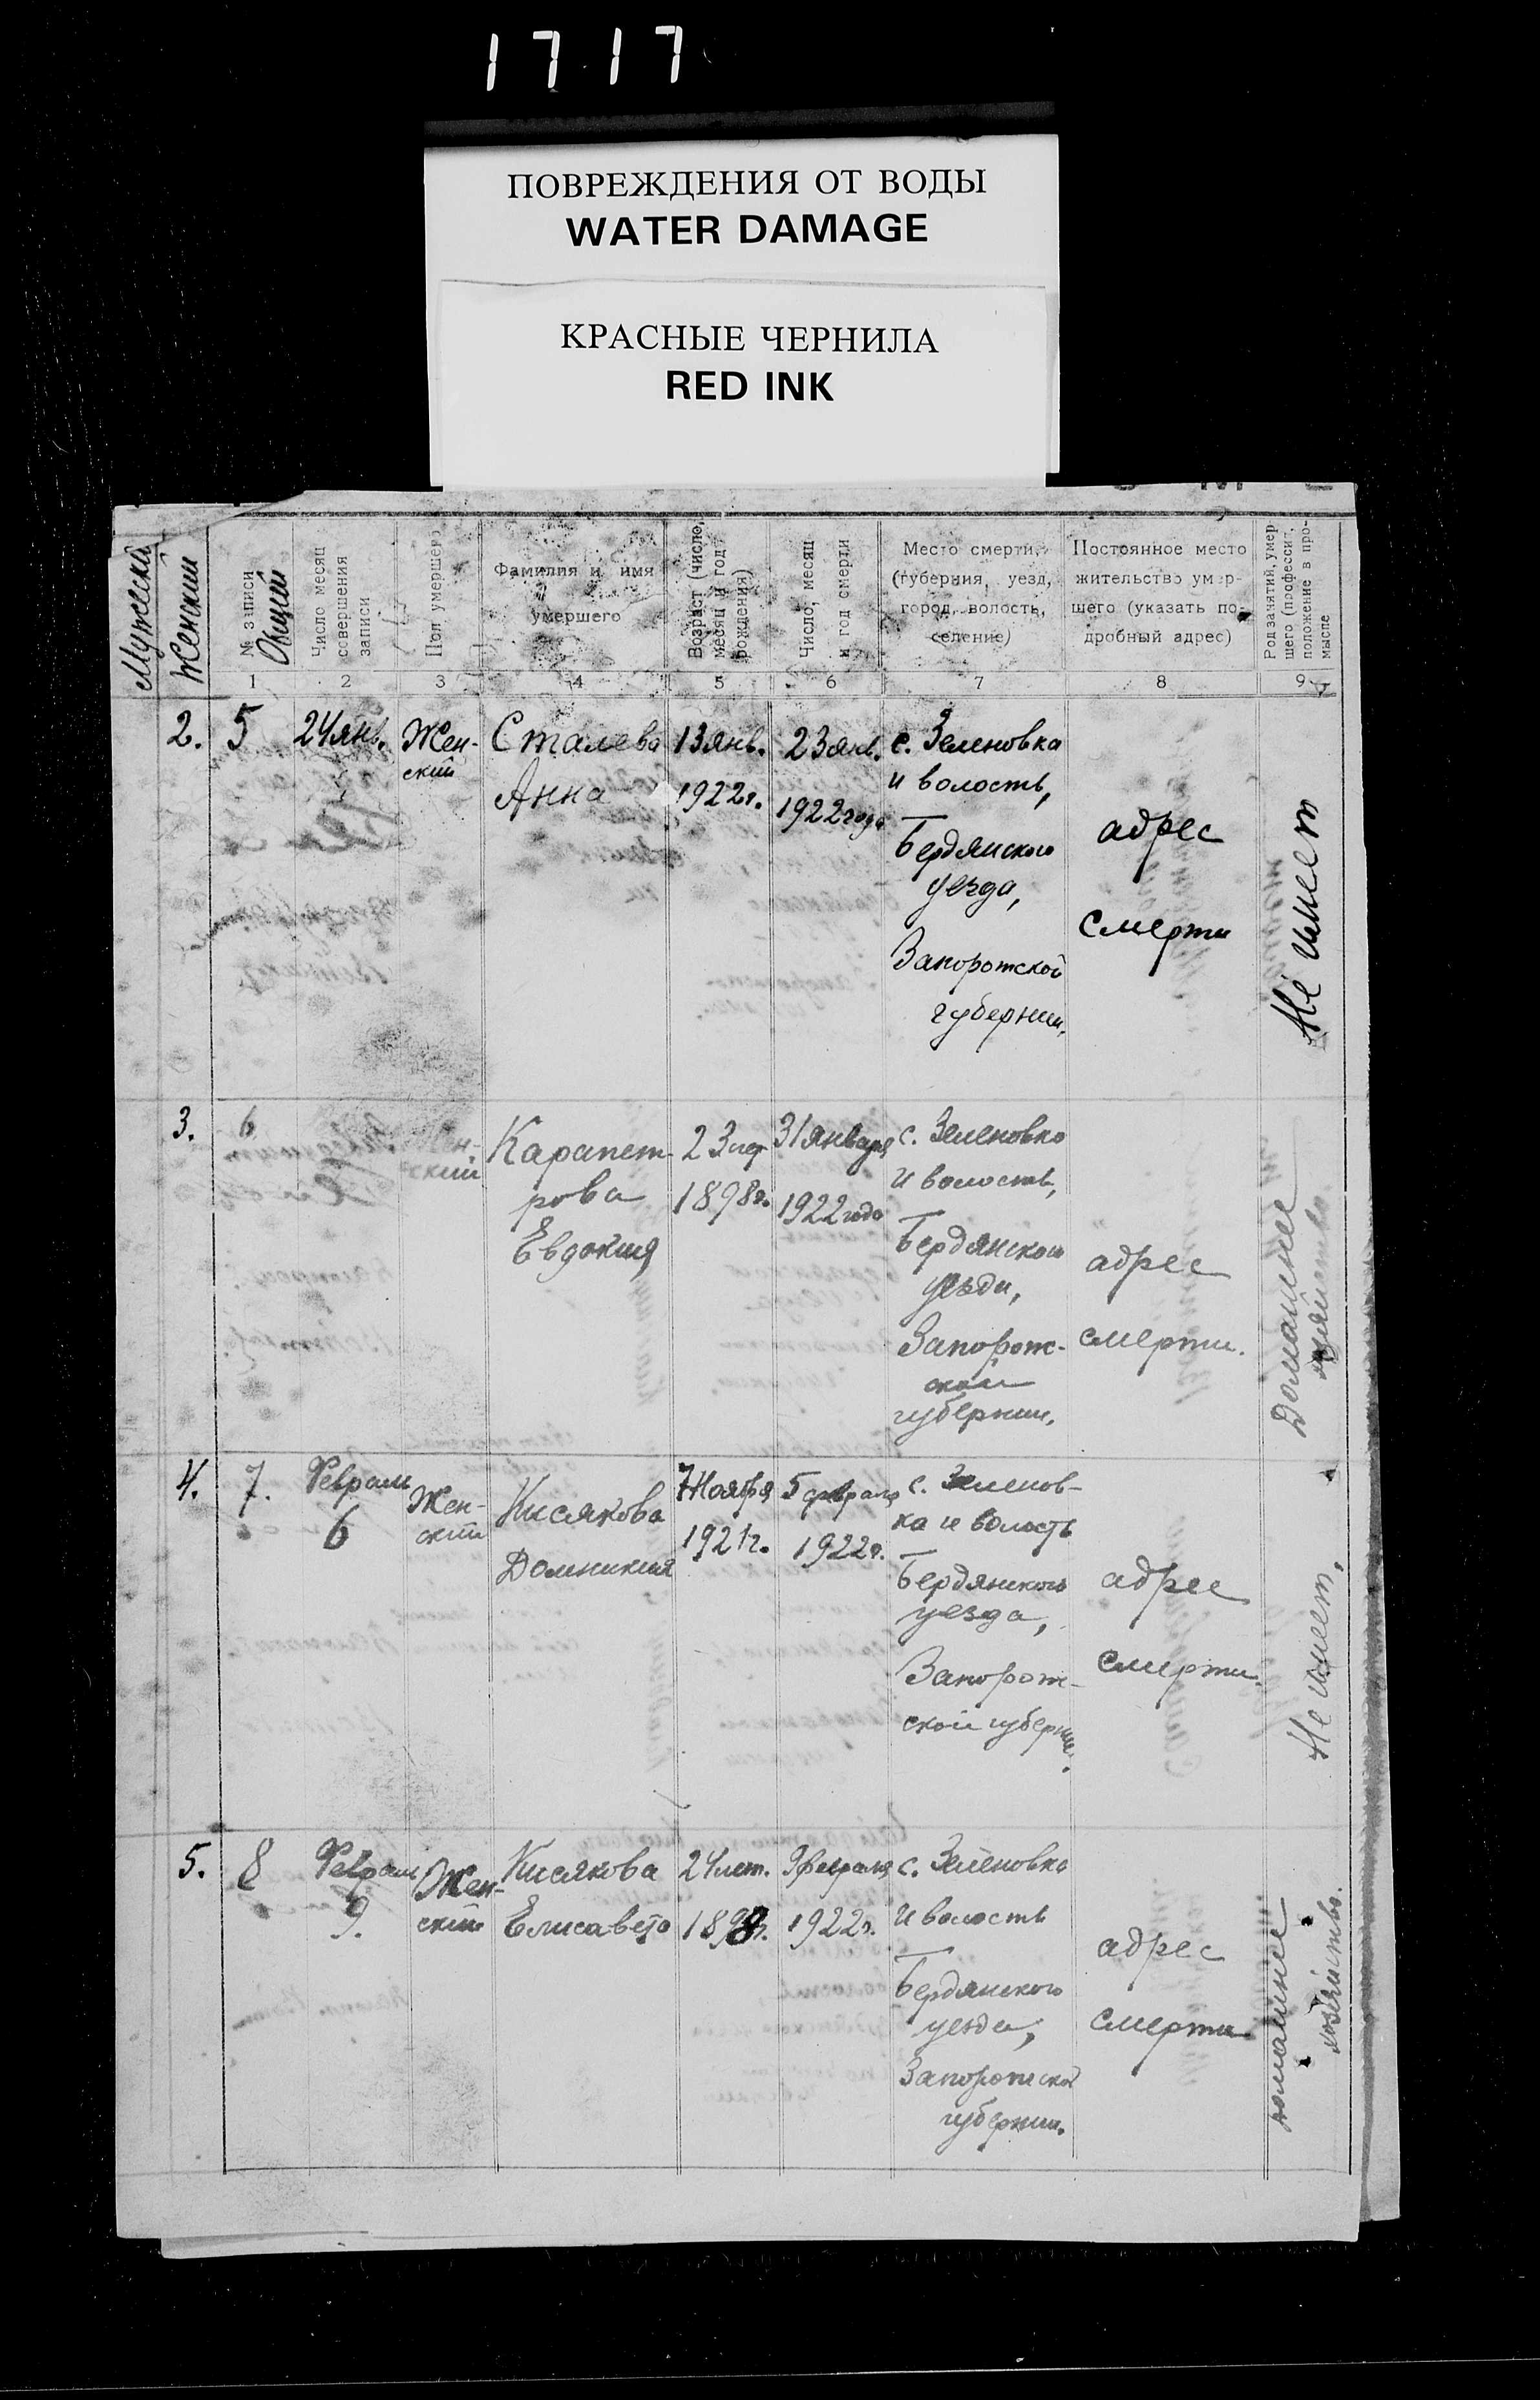 1717
ПОВРЕЖДЕНИЯ ОТ ВОДЫ
WATER DAMAGE
КРАСНЫЕ ЧЕРНИЛА
RED INK
Мужеский
Женский
№ записи
Общий
Число месяц
совершения
записи
Пол умершего
Фамилия и имя
умершего
Возраст (число,
месяц и год
рождения)
Число, месяц
и год смерти
Место смерти,
(губерния, уезд,
город, волость,
селение)
Постоянное место
жительство умер-
шего (указать по-
дробный адрес)
Род занятий умер
шего (профессит,
положение в про-
мысле
1 2 3 4 5 6 7 8 9
2.
5
24 янв.
Жен-
ский
Сталева
Анна
13 янв.
1922 г.
23 янв.
1922 года
с. Зеленовка
и волость,
Бердянского
уезда,
Запорожской
губернии.
адрес
смерти
Не имеет
3.
6
Жен-
ский
Карапет-
рова
Евдокия
23 лет
1898 г.
31 января
1922 года
с. Зеленовка
и волость,
Бердянского
уезда,
Запорож-
ской
губернии.
адрес
смерти.
Домашнее
хозяйство
4.
7.
Февраля
6
Жен-
ский
Кисякова
Домникия
7 Ноября
1921 г.
5 февраля
1922 г.
с. Зеленов-
ка и волость
Бердянского
уезда,
Запорож-
ской губернии.
адрес
смерти.
Не имеет.
5.
8
Февраля
9.
Жен-
ский
Кисякова
Елисавета
24 лет.
1898 г.
9 февраля
1922 г.
с. Зеленовка
и волость
Бердянского
уезда,
Запорожской
губернии.
адрес
смерти
домашнее
хозяйство.